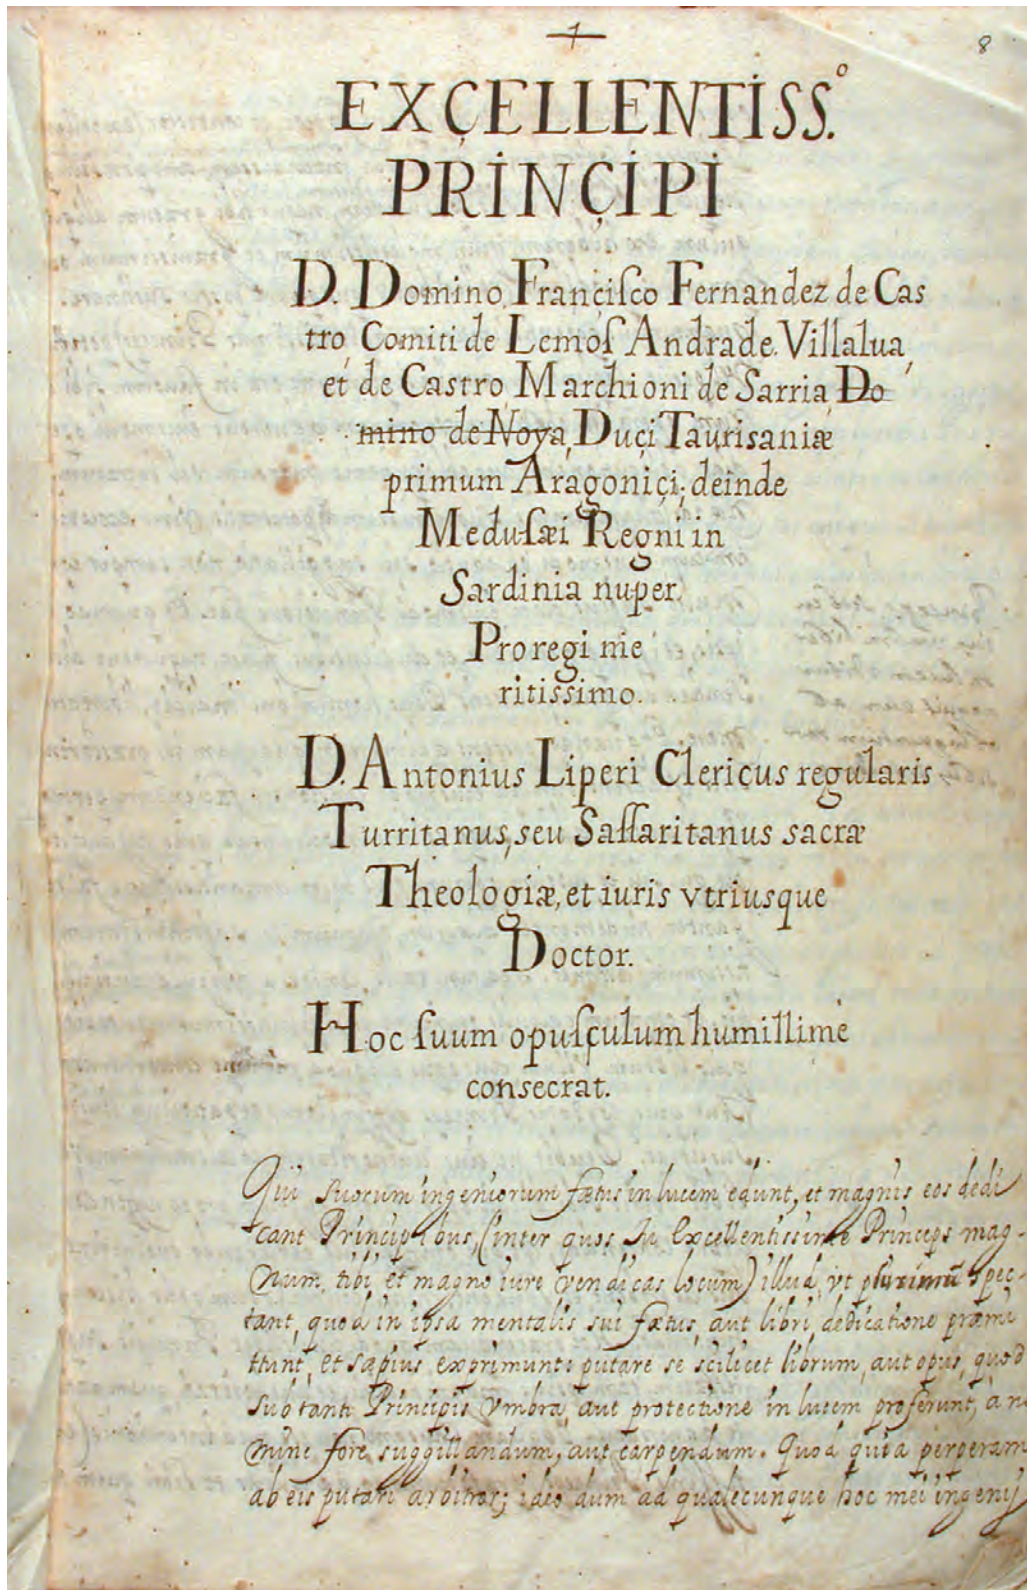 8
EXÇELLENTISS.º
PRINÇIPI
D. Domino Françiſco Fernandez de Cas
tro, Comiti de Lemoſ Andrade. Villalua,
et de Castro Marchioni de Sarria, Do
mino de Noya, Duçi Taurisaniæ
primum Aragoniçi; deinde
Meduſæi Regni in
Sardinia nuper
Proregi me
ritissimo.
D. Antonius Liperi Clericus regularis
Turritanus, seu Saſſaritanus sacræ
Theologiæ, et iuris vtriusque
Doctor.
Hoc ſuum opuſçulum humillime
consecrat.
Qui suorum ingeniorum fætus in lucem edunt, et magnis eos dedi
cant Principibus, (inter quos tu Excellentissime Princeps mag-
num, tibi, et magno iure vendicas locum) illud, vt plurimū spec-
tant, quod in ipsa mentalis sui fætus, aut libri, dedicatione præmi
ttunt, et sæpius exprimunt: putare se scilicet librum, aut opus, quod
sub tanti Principis vmbra, aut protectione in lucem proferunt, a ne
mine fore suggillandum, aut carpendum. Quod quia perperam
ab eis putari arbitror; ideo dum ad qualecunque hoc mei ingenij